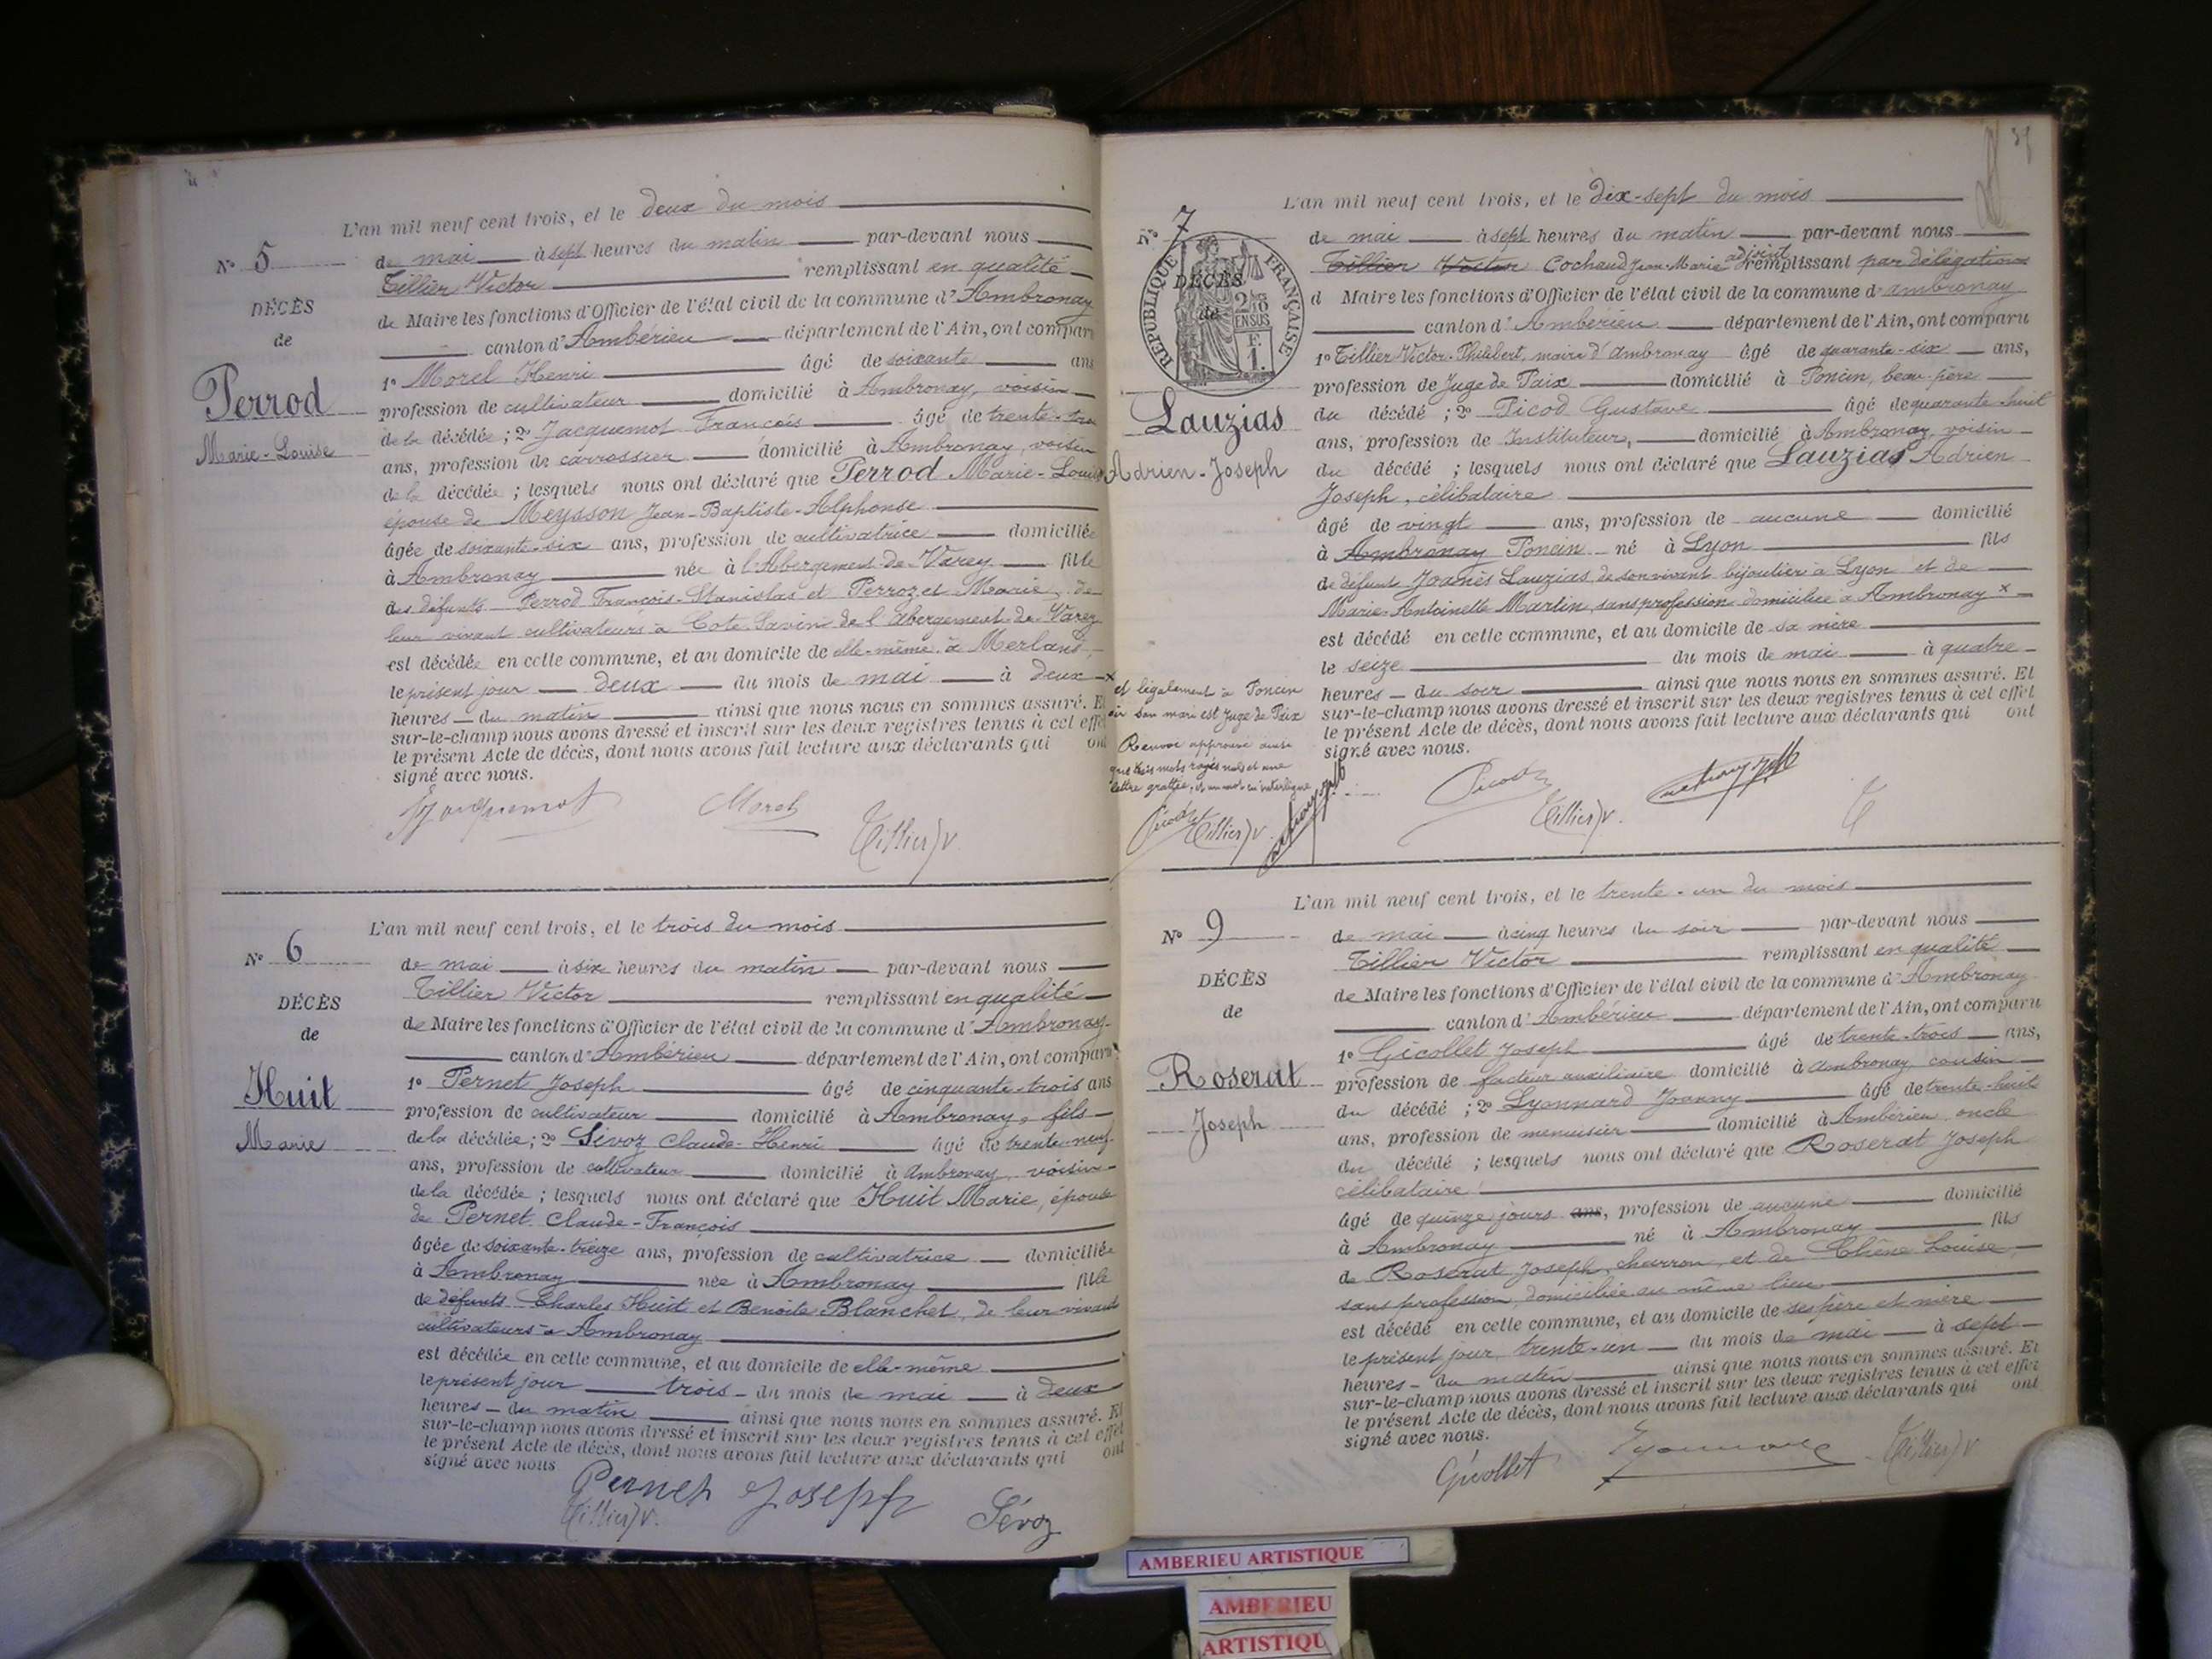 L'an mil neuf cent trois, et le deux du mois
Nº 5
de mai à sept heures du matin par-devant nous
Tillier Victor remplissant en qualité
DÉCÈS
de Maire les fonctions d'Officier de l'état civil de la commune d'Ambronay
de
canton d'Ambérieu département de l'Ain, ont comparu
1º Morel Henri âgé de soixante ans
Perrod
profession de cultivateur domicilié à Ambronay, voisin
de la décédée ; 2º Jacquemot François âgé de trente-
Marie-Louise
ans, profession de carrossier domicilié à Ambronay, voisin
de la décédée ; lesquels nous ont déclaré que Perrod Marie-Louise
épouse de Meysson Jean-Baptiste-Alphonse
âgée de soixante-six ans, profession de cultivatrice domiciliée
à Ambronay née à l'Abergement-de-Varey fille
des défunts Perrod François-Stanislas et Perrozet Marie, de
leur vivant cultivateurs à Cote Savin de l'abergement-de-Varey
est décédée en cette commune, et au domicile de elle-même, à Merland,
le présent jour deux du mois de mai à deux
heures du matin ainsi que nous nous en sommes assuré. Et
sur-le-champ nous avons dressé et inscrit sur les deux registres tenus à cet effet
le présent Acte de décès, dont nous avons fait lecture aux déclarants qui ont
signé avec nous.
Jacquemot Morel
Tillier V.
L'an mil neuf cent trois, et le trois du mois
Nº 6
de mai à six heures du matin par-devant nous
Tillier Victor remplissant en qualité
DÉCÈS
de Maire les fonctions d'Officier de l'état civil de la commune d'Ambronay
de
canton d'Ambérieu département de l'Ain, ont comparu
1º Pernet Joseph âgé de cinquante-trois ans
Huit
profession de cultivateur domicilié à Ambronay, fils
Marie
de la décédée ; 2º Sévoz Claude-Henri âgé de trente-neuf
ans, profession de cultivateur domicilié à Ambronay, voisin
de la décédée ; lesquels nous ont déclaré que Huit Marie, épouse
de Pernet Claude-François
âgée de soixante-treize ans, profession de cultivatrice domiciliée
à Ambronay née à Ambronay fille
de défunts Charles Huit et Benoite Blanchet, de leur vivant
cultivateurs à Ambronay
est décédée en cette commune, et au domicile de elle-même
le présent jour trois du mois de mai à deux
heures du matin ainsi que nous nous en sommes assuré. Et
sur-le-champ nous avons dressé et inscrit sur les deux registres tenus à cet effet
le présent Acte de décès, dont nous avons fait lecture aux déclarants qui ont
signé avec nous
Pernet Joseph
Tillier V. Sévoz
L'an mil neuf cent trois, et le dix-sept du mois
Nº 7
de mai à sept heures du matin par-devant nous
Tillier Victor Cochaud Jean-Marie adjoint remplissant par délégation
RÉPUBLIQUE FRANÇAISE
DÉCÈS
de
2/10 EN SUS
F. 1.
d Maire les fonctions d'Officier de l'état civil de la commune d'ambronay
canton d'Ambérieu département de l'Ain, ont comparu
1º Tillier Victor-Philibert, maire d'Ambronay âgé de quarante-six ans,
profession de Juge de Paix domicilié à Poncin, beau-père
Lauzias
du décédé ; 2º Picod Gustave âgé de quarante-huit
ans, profession de Instituteur, domicilié à Ambronay, voisin
Adrien-Joseph
du décédé ; lesquels nous ont déclaré que Lauzias Adrien
Joseph, célibataire
âgé de vingt ans, profession de aucune domicilié
à Ambronay Poncin né à Lyon fils
de défunt Joanès Lauzias de son vivant bijoutier à Lyon et de
Marie-Antoinette Martin, sans profession domiciliée à Ambronay x
est décédé en cette commune, et au domicile de sa mère
le seize du mois de mai à quatre
heures du soir ainsi que nous nous en sommes assuré. Et
sur-le-champ nous avons dressé et inscrit sur les deux registres tenus à cet effet
le présent Acte de décès, dont nous avons fait lecture aux déclarants qui ont
signé avec nous.
x et légalement à Poncin
où son mari est Juge de Paix
Renvoi approuvé ainsi
que trois mots rayés nuls et une
lettre grattée, et un mot en interligne
Picod Tillier V.
Picod Tillier V.
L'an mil neuf cent trois, et le trente-un du mois
Nº 9
de mai à cinq heures du soir par-devant nous
Tillier Victor remplissant en qualité
DÉCÈS
de Maire les fonctions d'Officier de l'état civil de la commune d'Ambronay
de
canton d'Ambérieu département de l'Ain, ont comparu
1º Gicollet Joseph âgé de trente-trois ans,
Roserat
profession de facteur auxiliaire domicilié à Ambronay cousin
Joseph
du décédé ; 2º Lyonnard Joanny âgé de trente-huit
ans, profession de menuisier domicilié à Ambérieu, oncle
du décédé ; lesquels nous ont déclaré que Roserat Joseph
célibataire
âgé de quinze jours ans, profession de aucune domicilié
à Ambronay né à Ambronay fils
de Roserat Joseph, charron, et de Chêne Louise,
sans profession, domiciliés au même lieu
est décédé en cette commune, et au domicile de ses père et mère
le présent jour, trente-un du mois de mai à sept
heures du matin ainsi que nous nous en sommes assuré. Et
sur-le-champ nous avons dressé et inscrit sur les deux registres tenus à cet effet
le présent Acte de décès, dont nous avons fait lecture aux déclarants qui ont
signé avec nous.
Gicollet Lyonnard Tillier V
AMBERIEU ARTISTIQUE
AMBERIEU
ARTISTIQU